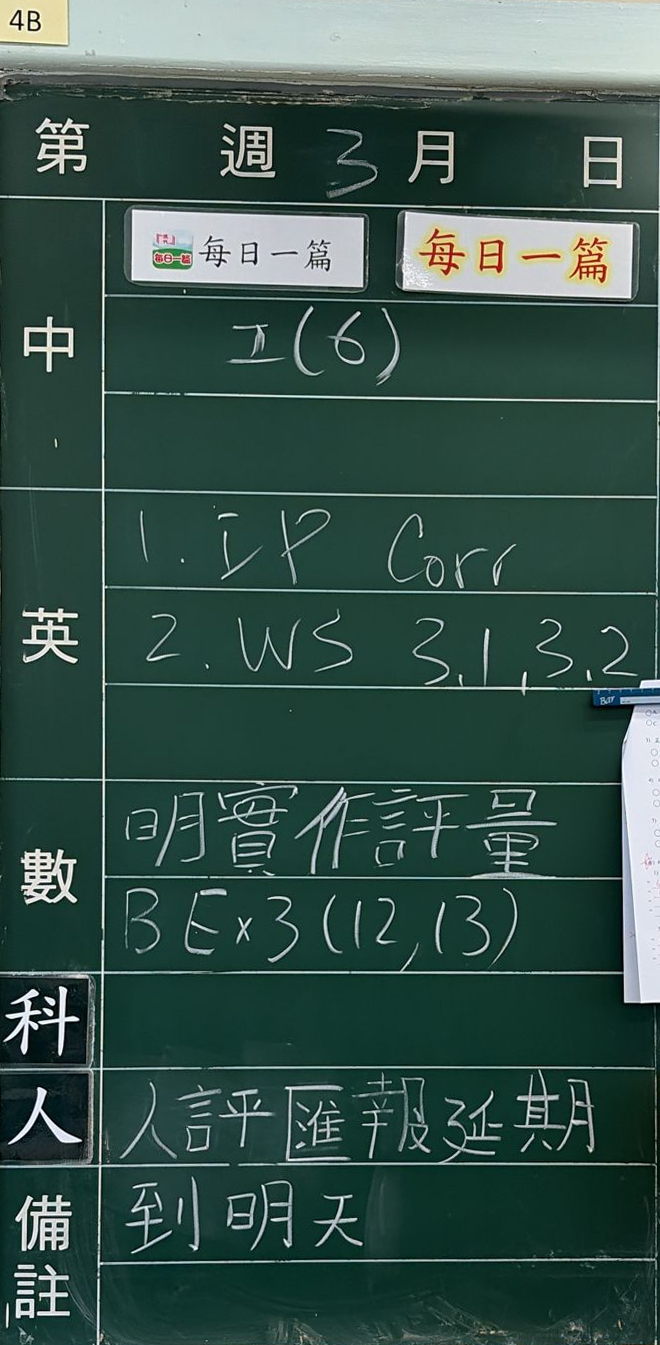 4B
第 週 3 月 日
每日一篇 每日一篇 每日一篇
中
工(6)
1. IP Corr
英
2. WS 3.1, 3.2
明實作評量
數
BEx3(12,13)
科
人 人評匯報延期
到明天
備註